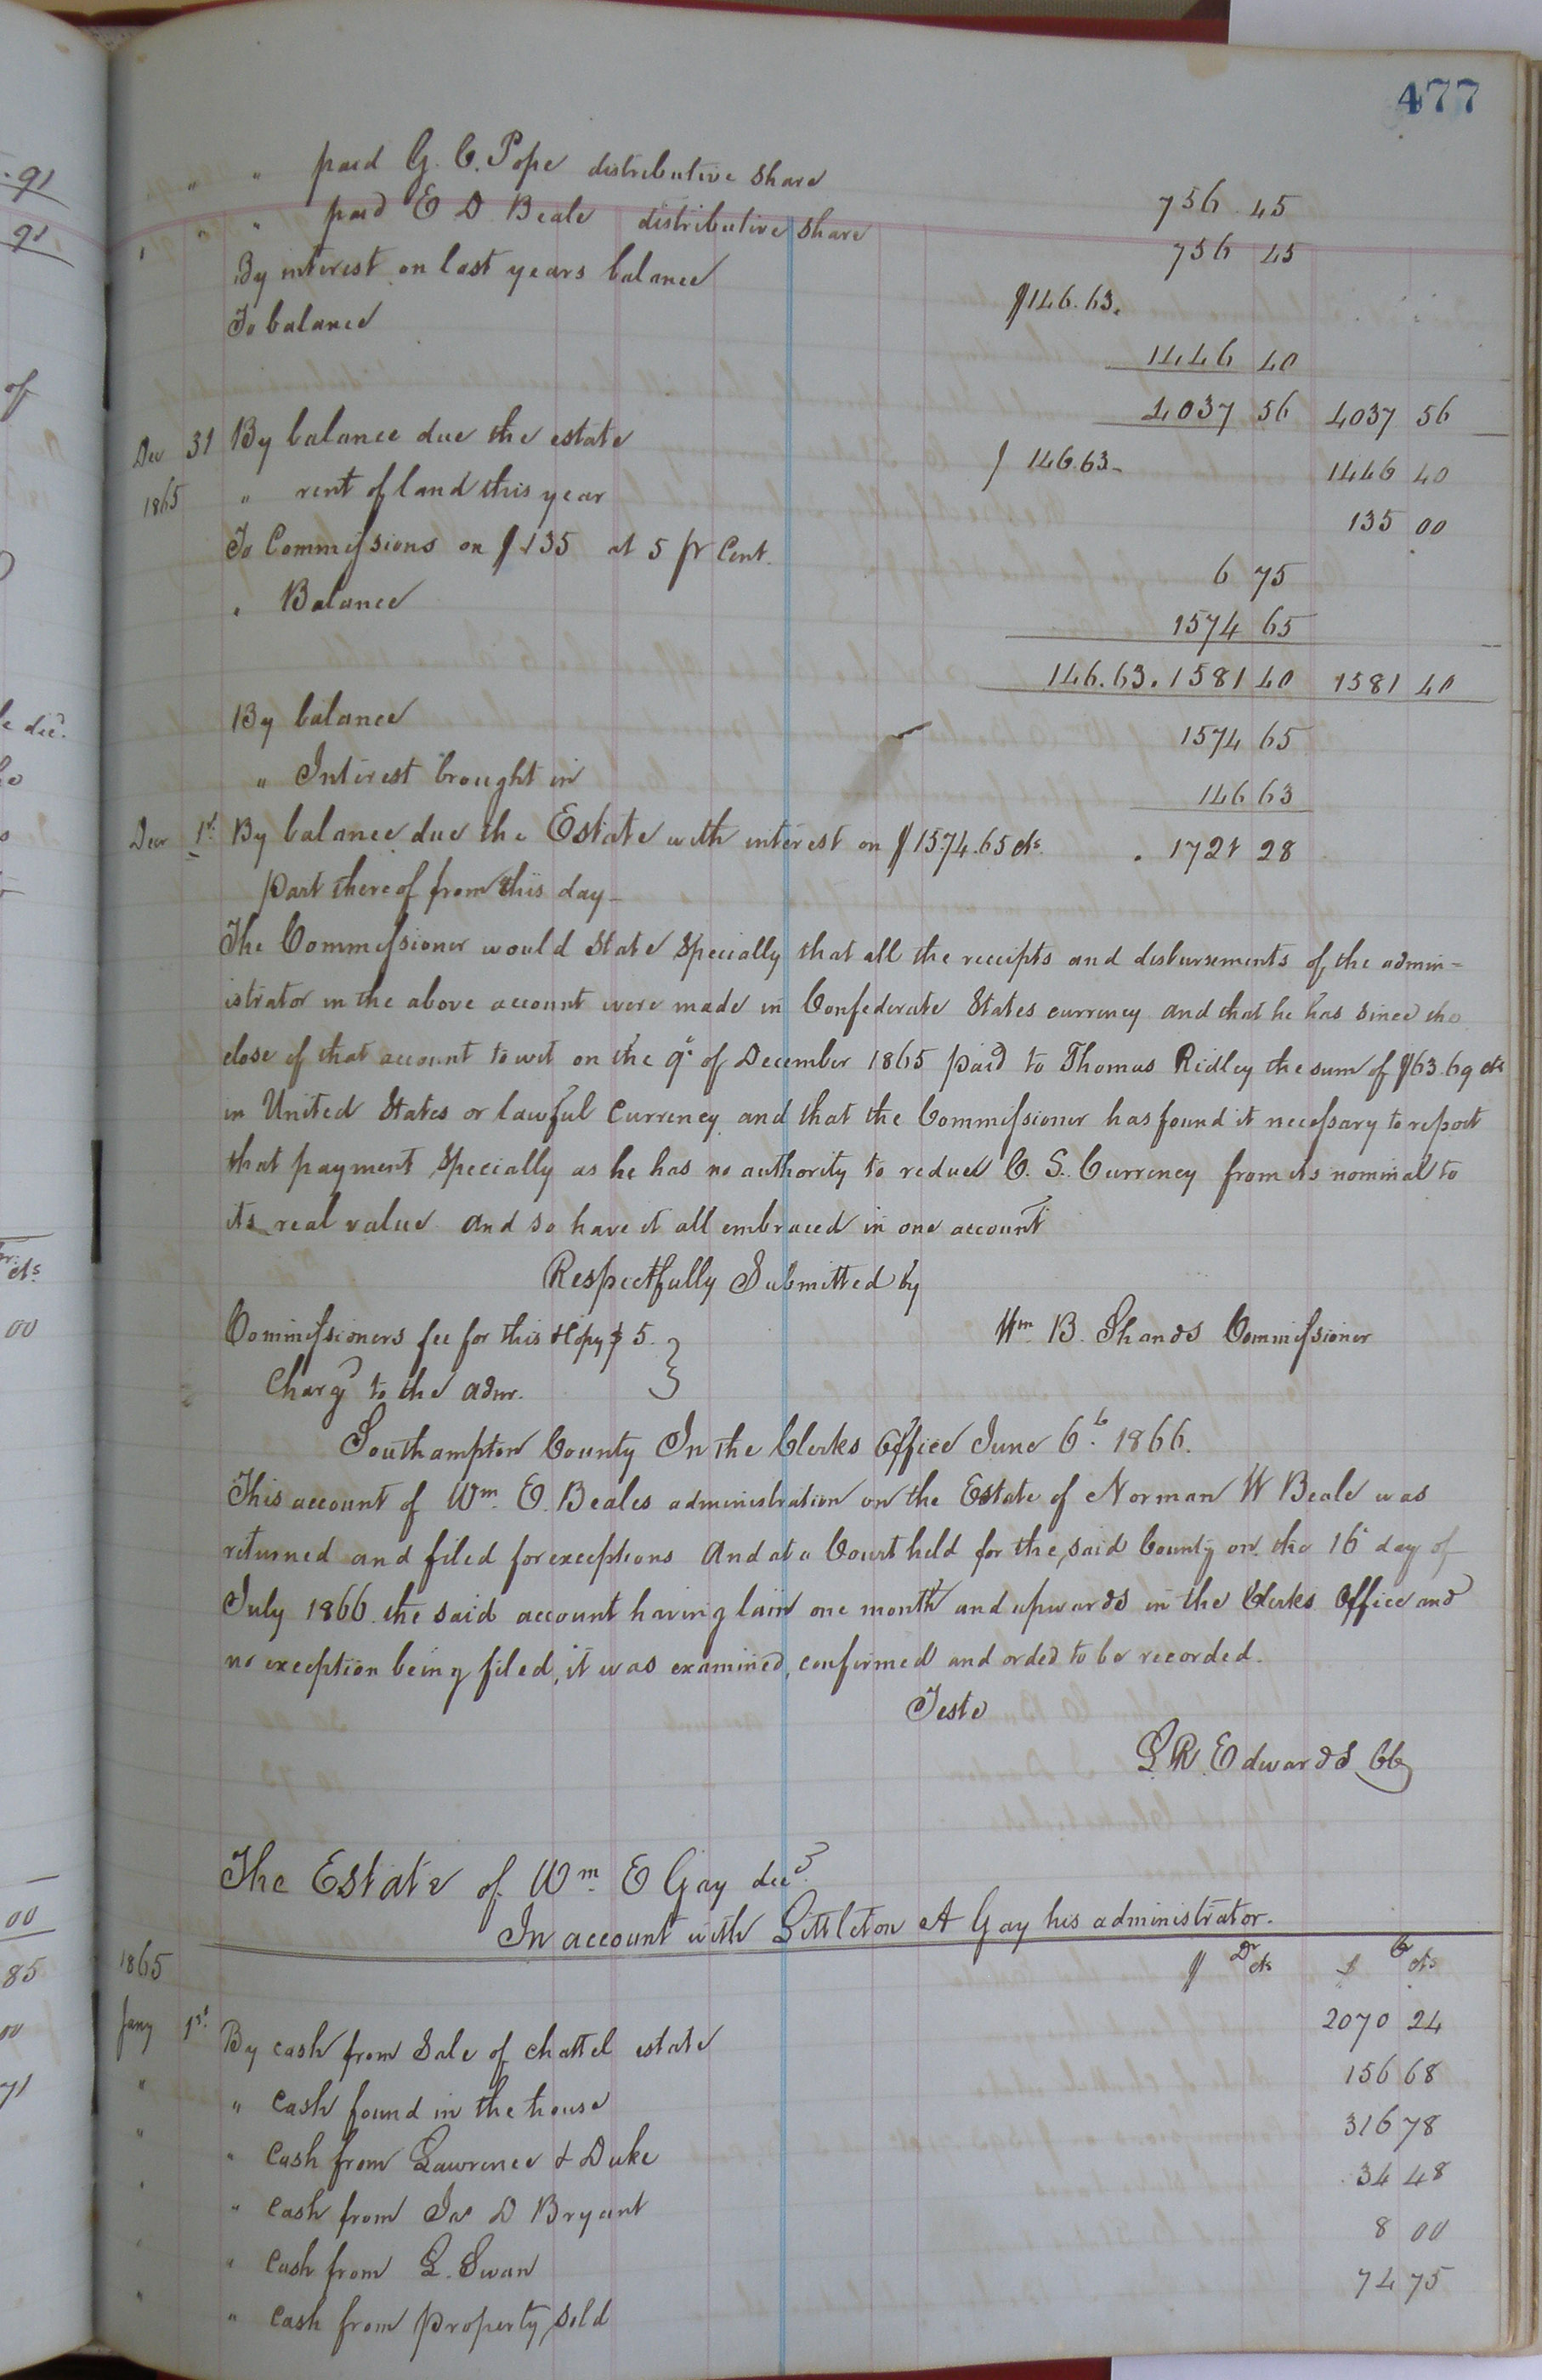 477
" " paid G. C. Pope distributive share 756 45
" " " paid E D Beale distributive share 756 45
By interest on last years balance $146.63.
To balance 1446 40
4037 56 4037 56
Dec 31 By balance due the estate $ 146.63 1446 40
1865 " rent of land this year 135 00
To Commissions on $135 at 5 pr Cent. 6 75
" Balance 1574 65
146.63. 1581 40 1581 40
By balance 1574 65
" Interest brought in 146 63
Decr 1st By balance due the Estate with interest on $1574.65 cts. 1721 28
part thereof from this day
The Commissioner would state specially that all the receipts and disbursements of the admin=
istrator in the above account were made in Confederate States currency and that he has since the
close of that account to wit on the 9th of December 1865 paid to Thomas Ridley the sum of $63.69 cts
in United States or lawful currency and that the Commissioner has found it necessary to report
that payment specially as he has no authority to reduce C. S. Currency from its nominal to
its real value and so have it all embraced in one account
Respectfully Submitted by
Commissioners fee for this & Copy $ 5. Wm B. Shands Commissioner
Chargd to the admr.
Southampton County In the Clerks Office June 6th 1866.
This account of Wm. E. Beales administration on the Estate of Norman W Beale was
returned and filed for exceptions And at a Court held for the said County on the 16 day of
July 1866 the said account having lain one month and upwards in the Clerks Office and
no exception being filed, it was examined, confirmed and orded to be recorded.
Teste
L. R. Edwards CC
The Estate of Wm. E Gay decd.
In account with Littleton A Gay his administrator.
1865 $ Dr cts $ Cr cts
Jany 1st. By cash from Sale of chattel estate 2070 24
" " cash found in the house 156 68
" " Cash from Lawrence & Duke 316 78
" " cash from Jas D Bryant 34 48
" " cash from L. Swan 8 00
" " cash from property sold 74 75
.91
91
of
decd.
cts
00
00
85
00
71